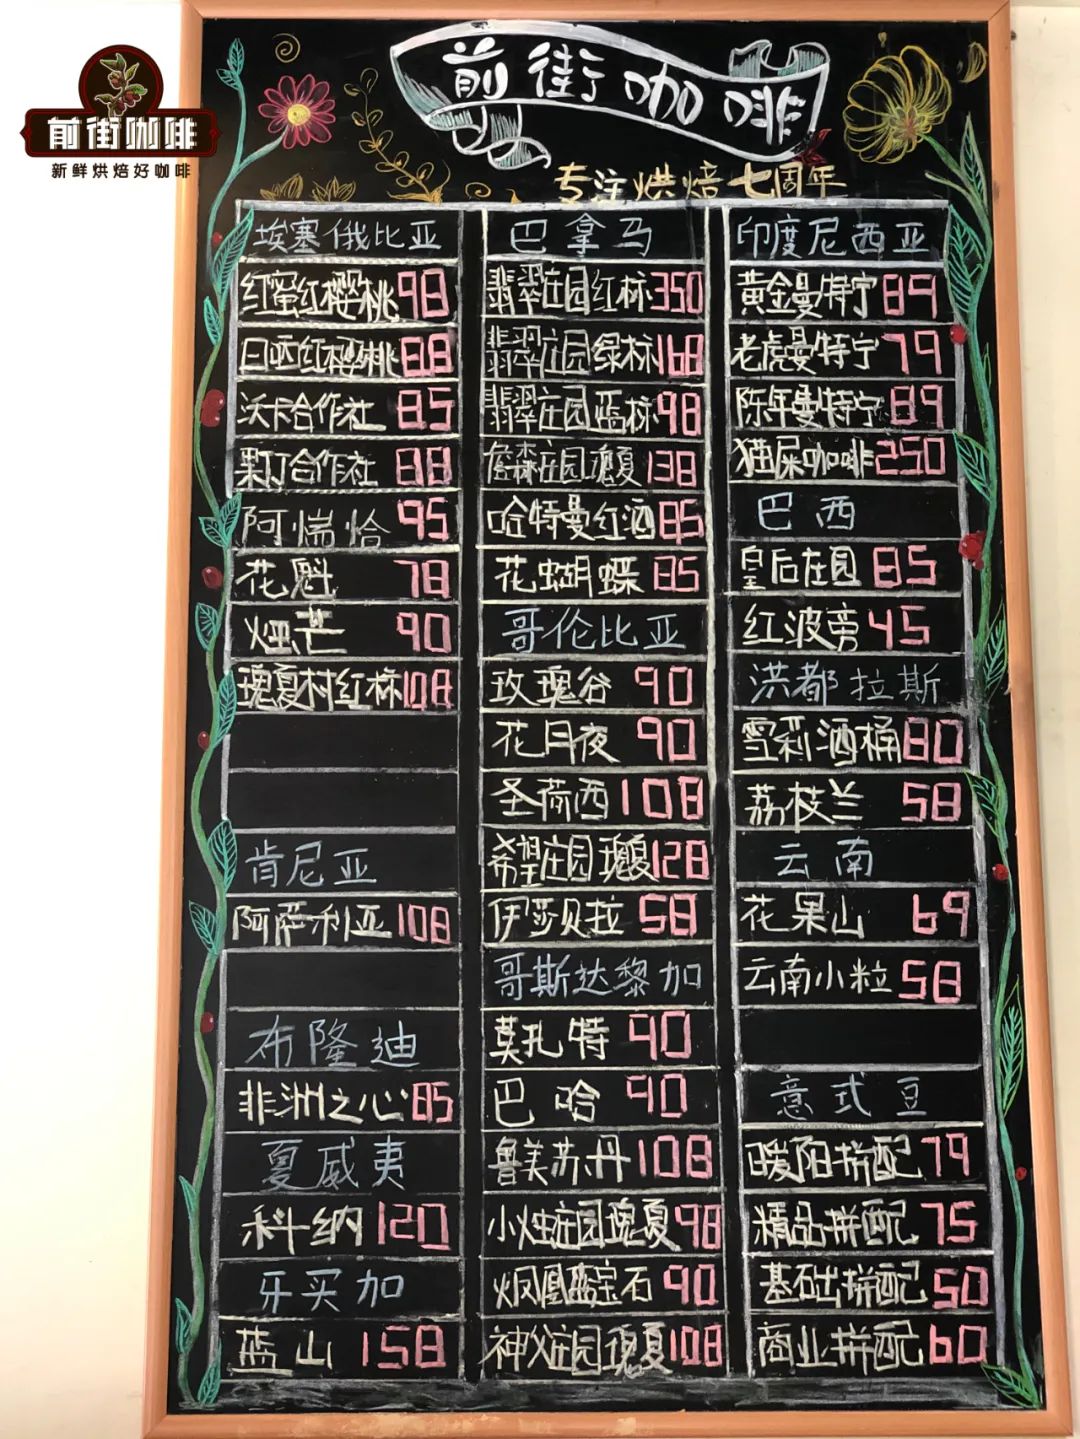 前街咖啡
新鲜烘焙好咖啡
前街咖啡
专注烘焙七周年
埃塞俄比亚
红蜜红樱桃 98
日晒红樱桃 88
沃卡合作社 85
果丁丁合作社 88
阿惴恰 95
花魁 78
烛芒 90
瑰夏村红标 108
肯尼亚
阿萨利亚 108
布隆迪
非洲之心 85
夏威夷
科纳 120
牙买加
蓝山 158
巴拿马
翡翠庄园红标 350
翡翠庄园绿标 168
翡翠庄园蓝标 98
詹森庄园瑰夏 138
哈特曼红酒 85
花蝴蝶 85
哥伦比亚
玫瑰谷 90
花月夜 90
圣荷西 108
希望庄园瑰夏 128
伊莎贝拉 58
哥斯达黎加
莫扎特 90
巴哈 90
鲁美苏丹 108
小烛庄园瑰夏 98
火凤凰蓝宝石 90
神父庄园瑰夏 108
印度尼西亚
黄金曼特宁 89
老虎曼特宁 79
陈年曼特宁 89
猫屎咖啡 250
巴西
皇后庄园 85
红波旁 45
洪都拉斯
雪莉酒桶 80
荔枝兰 58
云南
花果山 69
云南小粒 58
意式豆
暖阳拼配 79
精品拼配 75
基础拼配 50
商业拼配 60